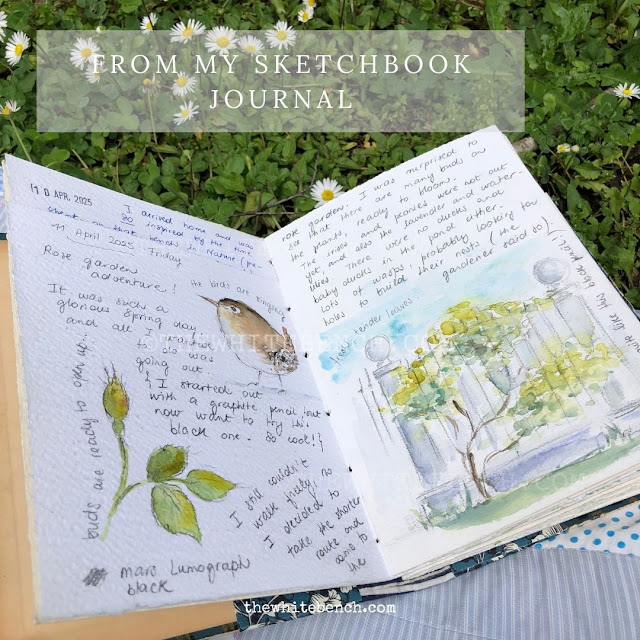 FROM MY SKETCHBOOK
JOURNAL
1 0 APR. 2025
I arrived home and was
so inspired by the time
spent on that bench in Nature
11 April 2025 Friday
Rose garden
adventure!
the birds are singing
It was such a
glorious Spring day
and all I wanted
to do was
going out.
{ I started out
with a graphite pencil, but
now want to try this
black one. So cool! }
buds are ready to open up
I still couldn't
walk freely, so
I decided to
take the shorter
route and
came to
the
mars Lumograph
black
rose garden. I was surprised to
see that there are many buds on
the plants, ready to bloom.
The irises and peonies were not out
yet, and also the lavender and water-
lilies. There were no ducks and
baby ducks in the pond either.
Lots of wasps, probably looking for
holes to build their nests (the
gardener said so)
tender leaves
like this black pencil!
thewhitebench.com